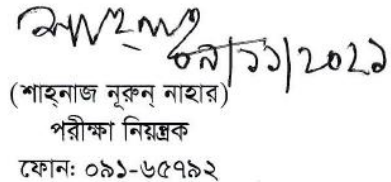 ০৯/১১/২০২১
(শাহ্‌নাজ নূরুন্ নাহার)
পরীক্ষা নিয়ন্ত্রক
ফোন: ০৯১-৬৫৭৯২